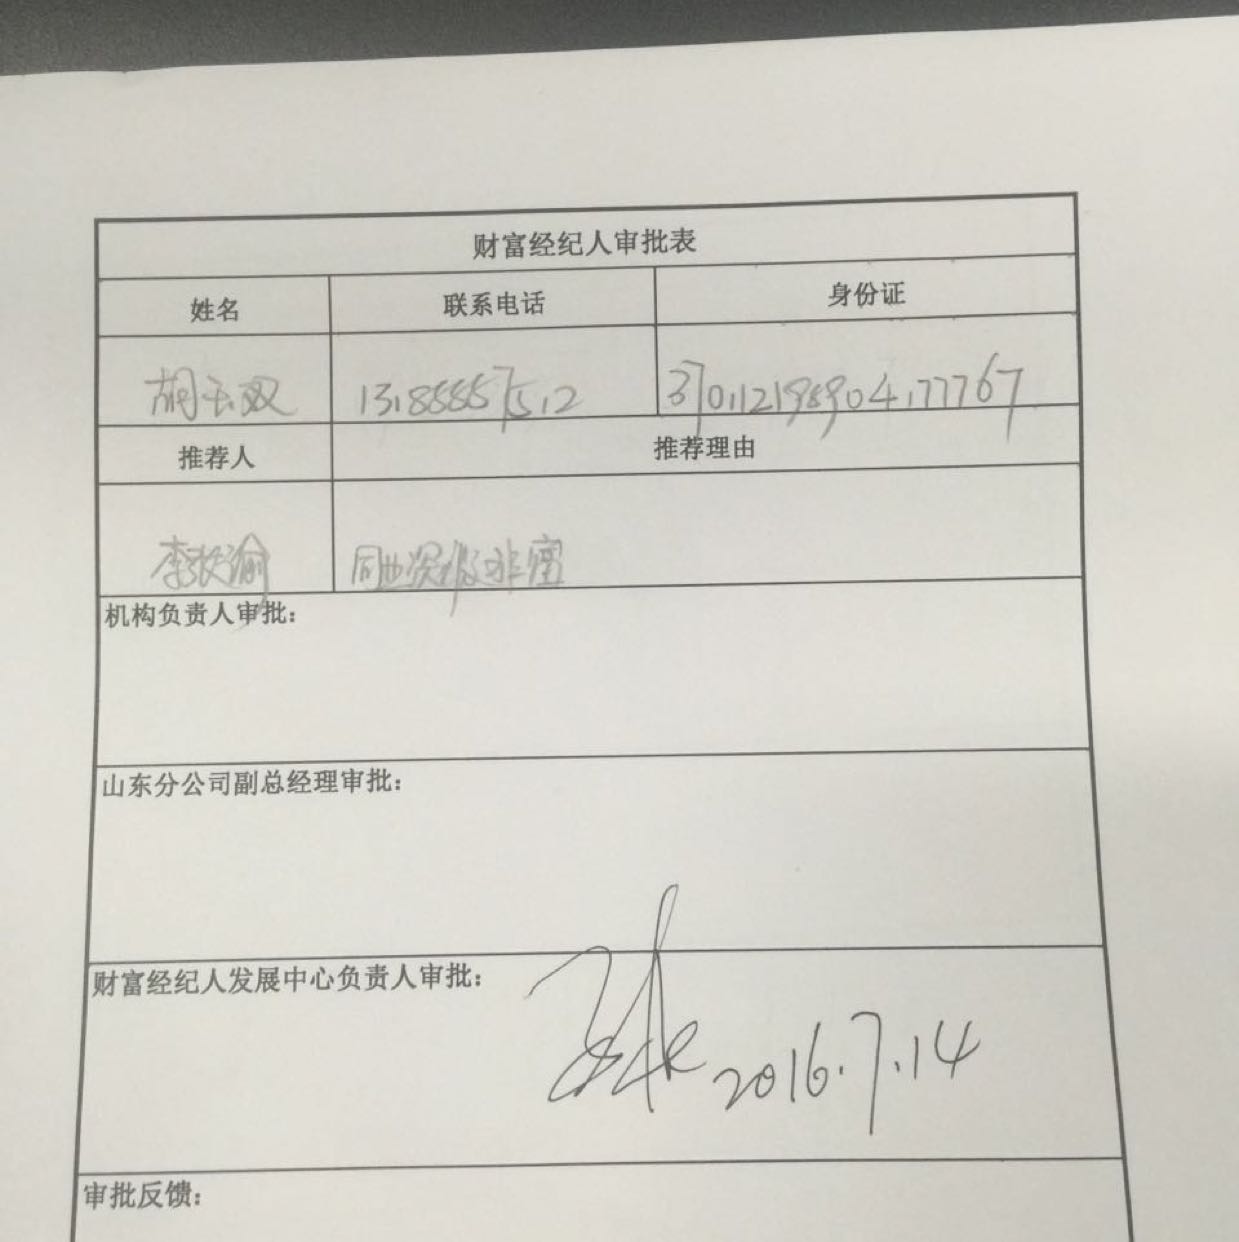 财富经纪人审批表
姓名 联系电话 身份证
胡玉双 13185557512 370112198904177767
推荐人 推荐理由
李 瑜 同业资源丰富
机构负责人审批:
山东分公司副总经理审批:
财富经纪人发展中心负责人审批:
2016.7.14
审批反馈: